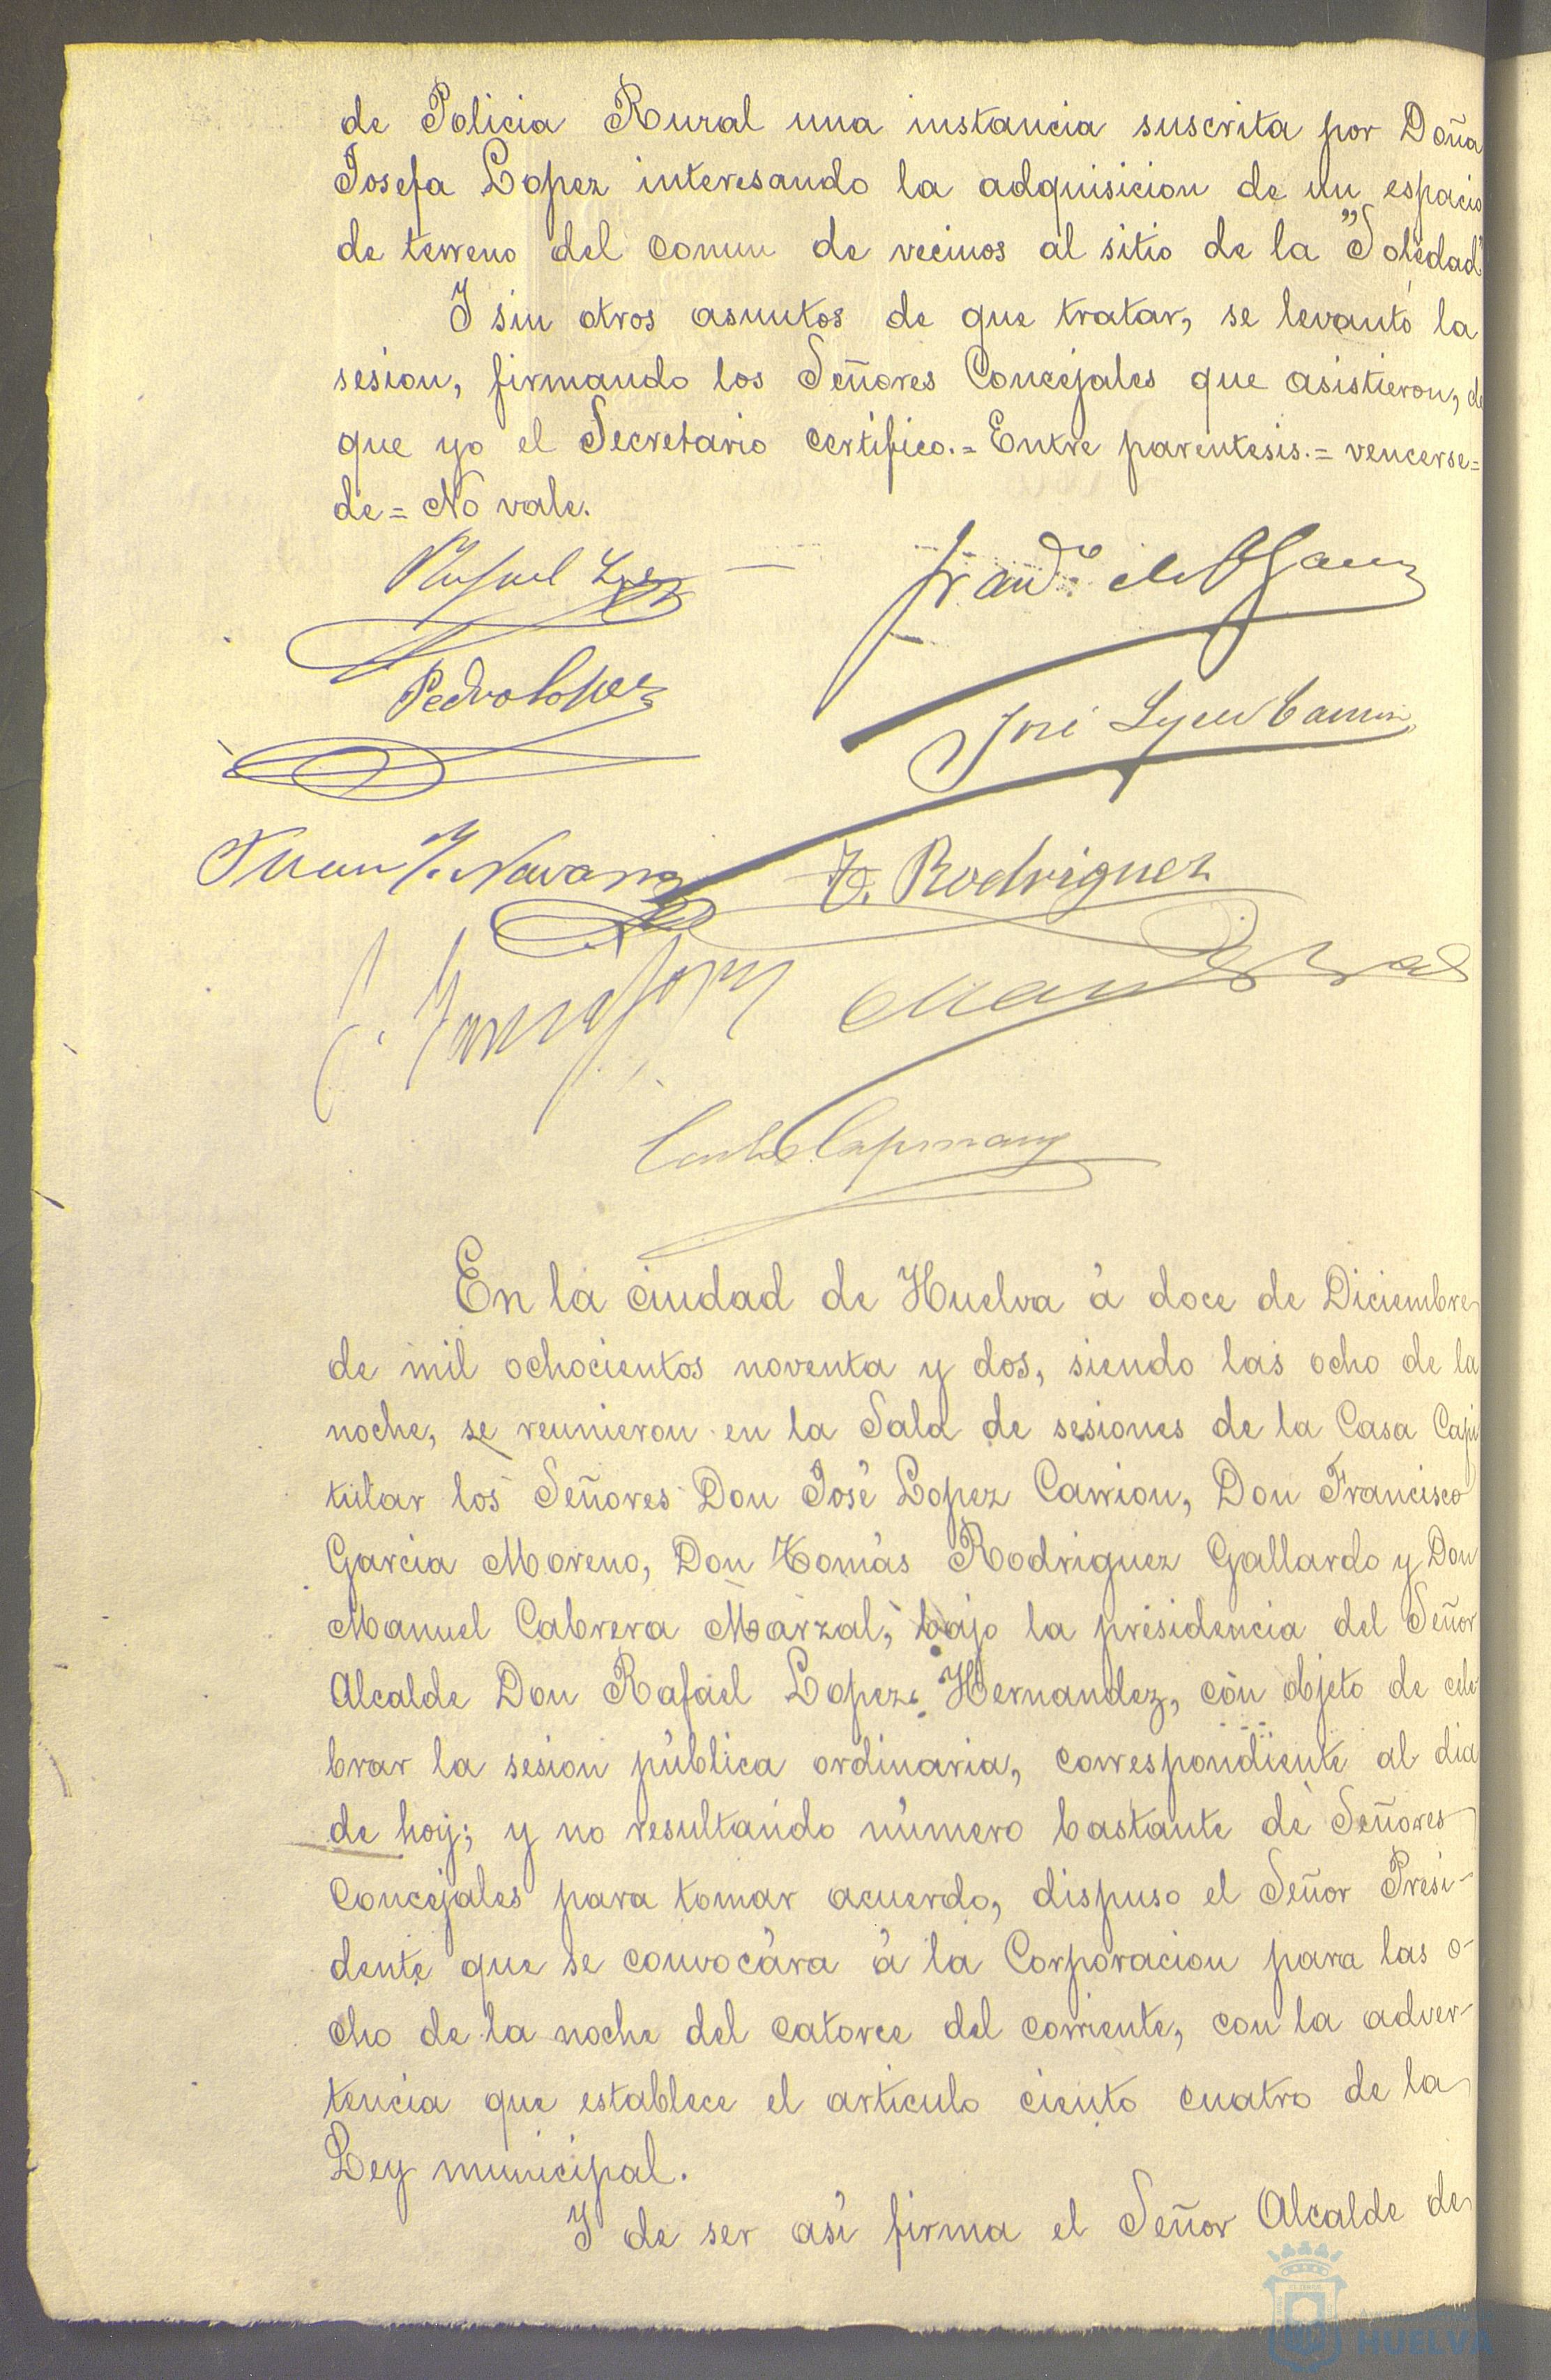 de Policia Rural una instancia suscrita por Doña
Josefa Lopez interesando la adquisicion de un espacio
de terreno del comun de vecinos al sitio de la "Soledad"
Y sin otros asuntos de que tratar, se levantó la
sesion, firmando los Señores Concejales que asistieron, de
que yo el Secretario certifico.= Entre parentesis.= vencerse=
de= No vale.
Rafael Lopez
Pedro Lopez
José Lopez Carrion
Juan J. Navarro
T. Rodriguez
Capmany
En la ciudad de Huelva á doce de Diciembre
de mil ochocientos noventa y dos, siendo las ocho de la
noche, se reunieron en la Sala de sesiones de la Casa Capi
tular los Señores Don José Lopez Carrion, Don Francisco
Garcia Moreno, Don Tomás Rodriguez Gallardo y Don
Manuel Cabrera Marzal, bajo la presidencia del Señor
Alcalde Don Rafael Lopez Hernandez, con objeto de cele
brar la sesion pública ordinaria, correspondiente al dia
de hoy; y no resultando número bastante de Señores
Concejales para tomar acuerdo, dispuso el Señor Presi-
dente que se convocára á la Corporacion para las o-
cho de la noche del catorce del corriente, con la adver-
tencia que establece el articulo ciento cuatro de la
Ley municipal.
Y de ser así firma el Señor Alcalde de
HUELVA